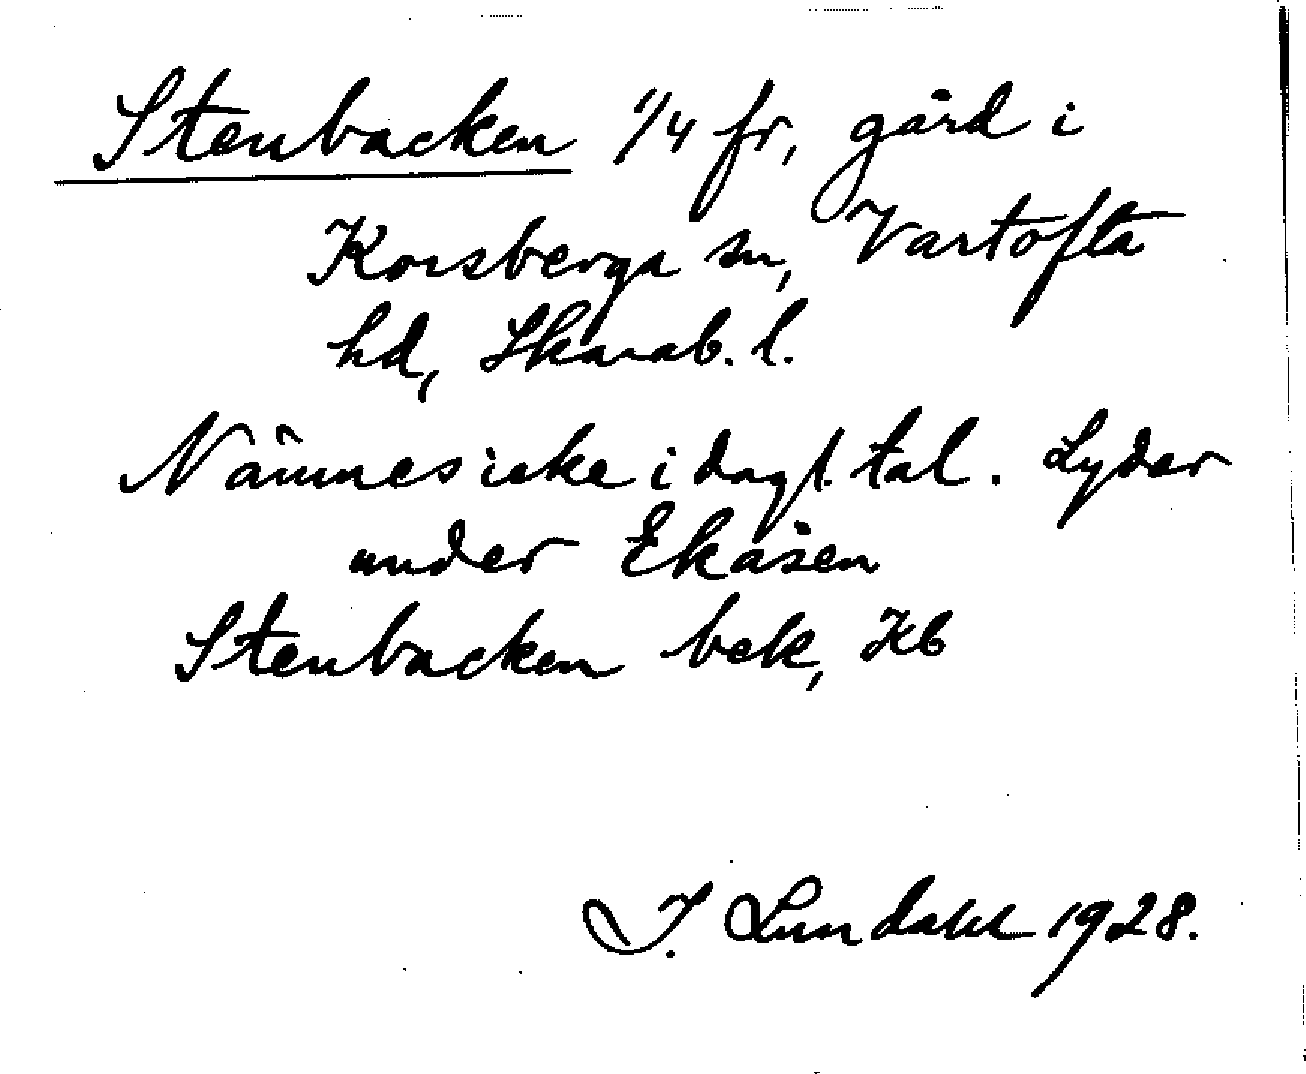 Stenbacken 1/4 fr, gård i
Korsberga sn, Vartofta
hd, Skarab. l.
Nämnes icke i dagl. tal. Lyder
under Ekåsen
Stenbacken bek, Kb
I. Lundahl 1928.